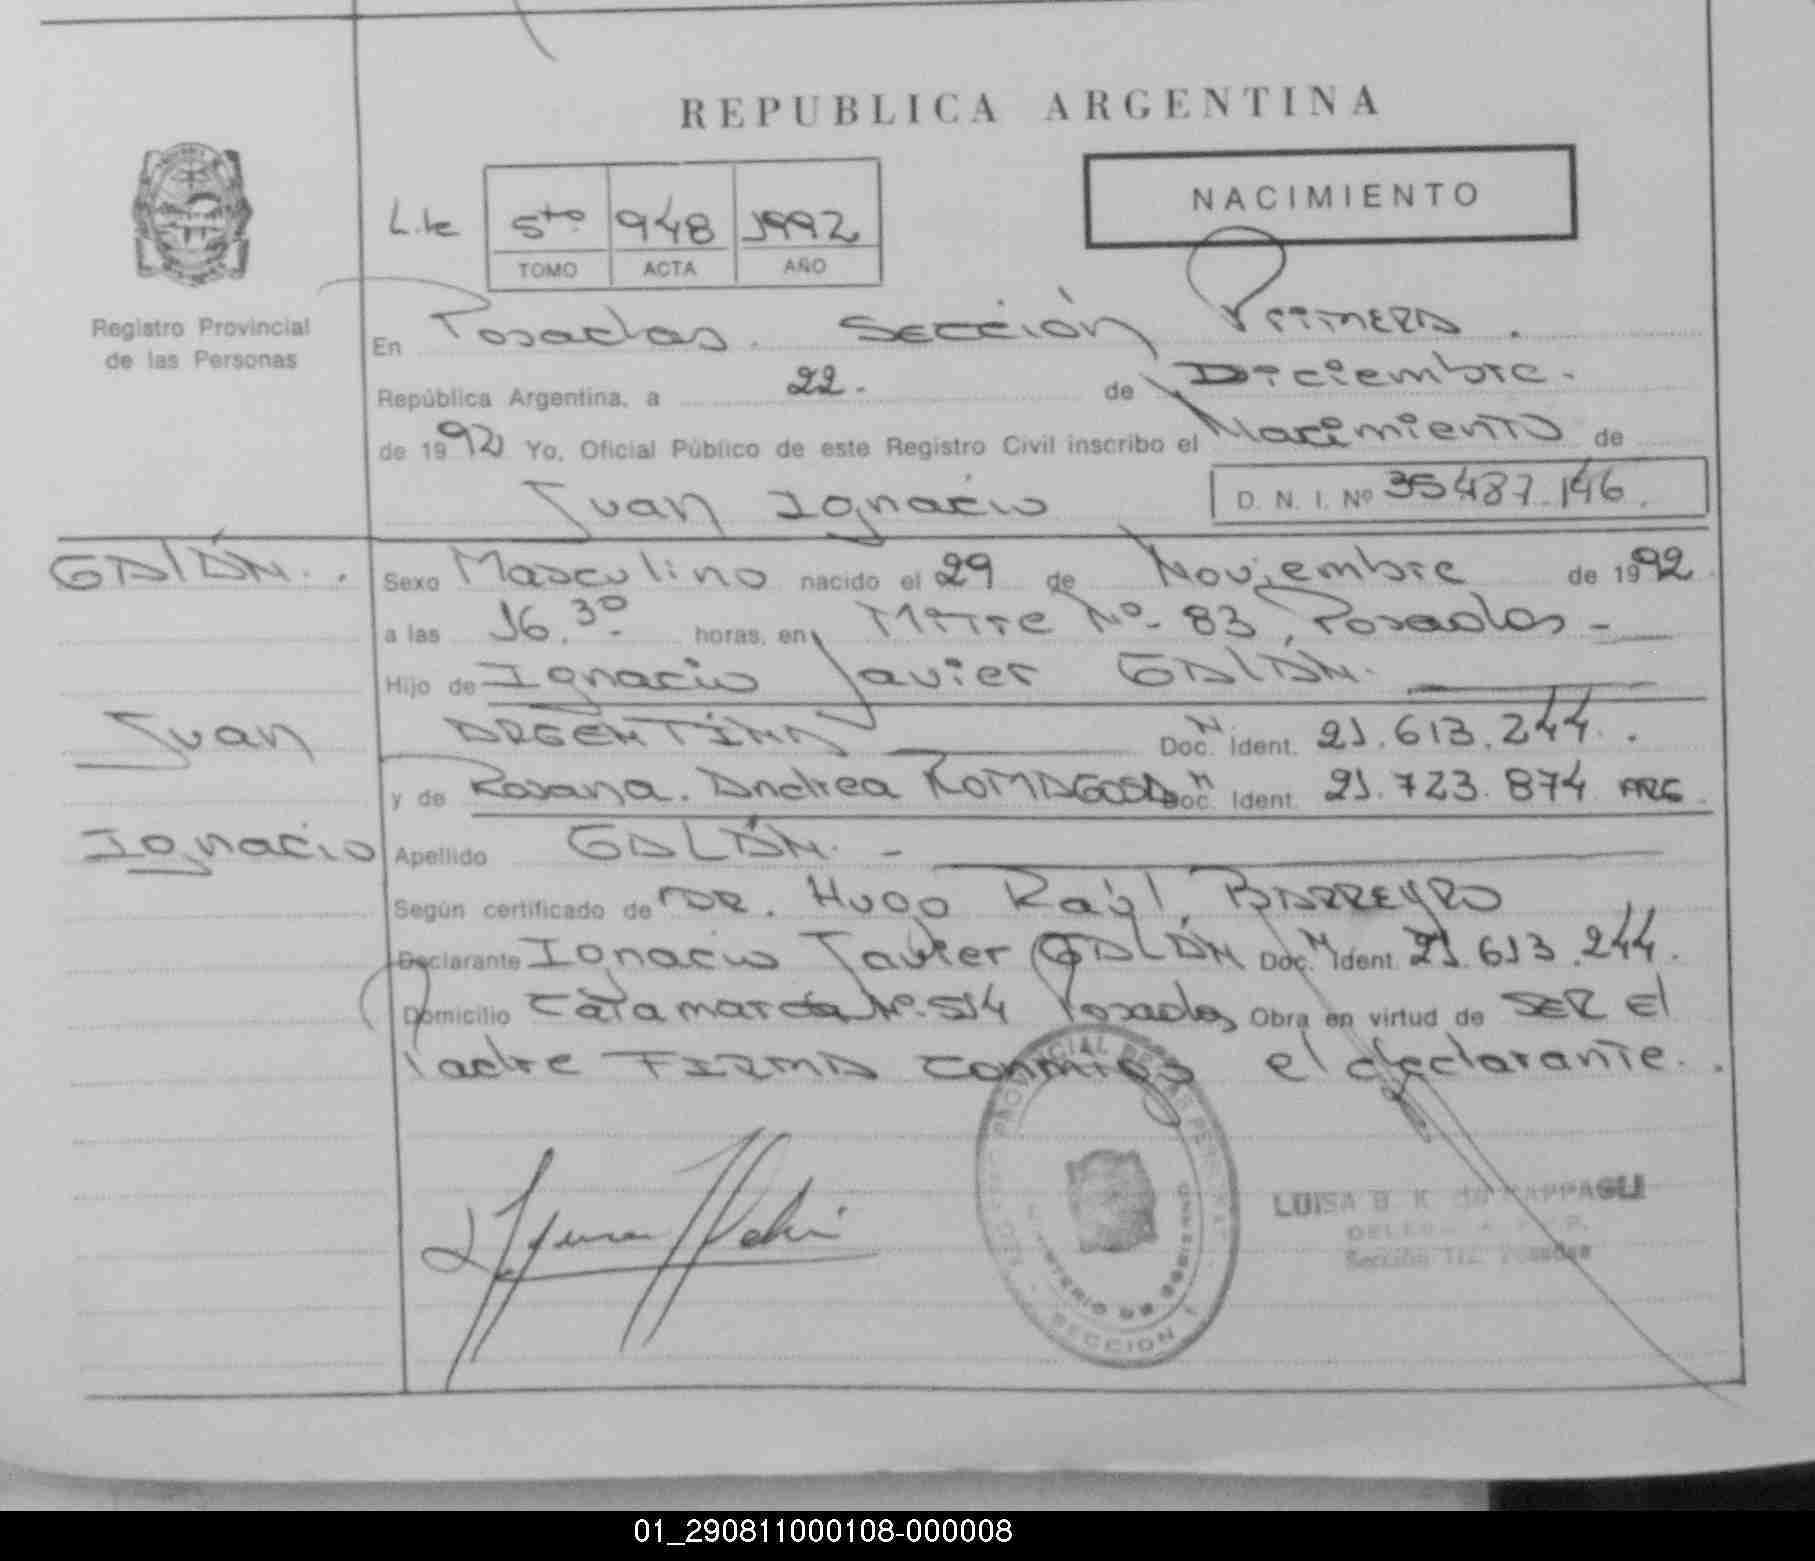 REPUBLICA ARGENTINA
NACIMIENTO
L.te 5to 948 1992
TOMO ACTA AÑO
Registro Provincial
de las Personas
En Posadas. Sección Primera.
República Argentina, a 22. de Diciembre.
de 1992 Yo, Oficial Público de este Registro Civil inscribo el Nacimiento de
Juan Ignacio D. N. I. Nº 35487.146.
GALÁN.. Sexo Masculino nacido el 29 de Noviembre de 1992
a las 16.30 horas, en Mitre Nº 83, Posadas -
Hijo de Ignacio Javier GALÁN.
Juan ARGENTINA Doc. N. Ident. 21.613.244.
y de Rosana. Andrea ROMAGOSA Doc. N Ident. 21.723.874 ARG.
Ignacio Apellido GALÁN. -
Según certificado de DR. Hugo Raúl. BARREYRO
Declarante Ignacio Javier GALÁN Doc. N Ident. 21.613.244.
Domicilio Catamarca Nº 514 Posadas Obra en virtud de SER El
Padre FIRMA conmigo el declarante..
PROVINCIAL DE LAS PERSONAS
MINISTERIO DE GOBIERNO
SECCION 1
LUISA B K de RAPPAGLI
Sección 1ra. Posadas
01_290811000108-000008